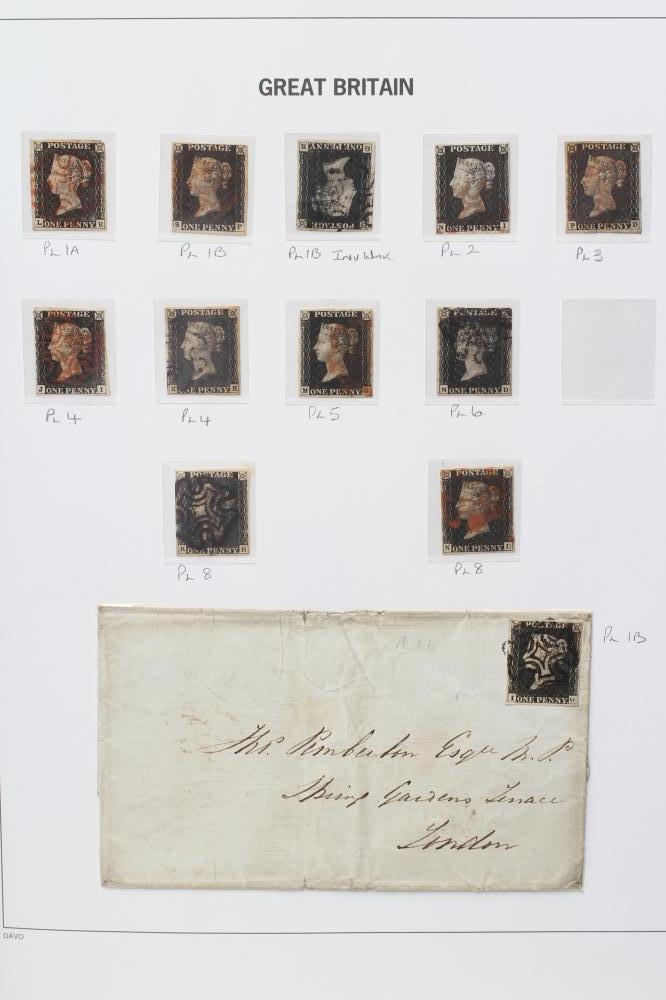 GREAT BRITAIN
POSTAGE POSTAGE ONE PENNY POSTAGE POSTAGE
L ONE PENNY E S ONE PENNY P POSTAGE N ONE PENNY I P ONE PENNY D
PL 1A PL 1B PL 1B INV WMK. PL 2 PL 3
POSTAGE POSTAGE POSTAGE POSTAGE
J ONE PENNY I E ONE PENNY M ONE PENNY N ONE PENNY D
PL 4 PL 4 PL 5 PL 6
POSTAGE POSTAGE
ONE PENNY N ONE PENNY D
PL 8 PL 8
POSTAGE
PL 1B
PL 1b
I ONE PENNY G
Thos. Pemberton Esqre M.P.
Spring Gardens Terrace
London
DAVO